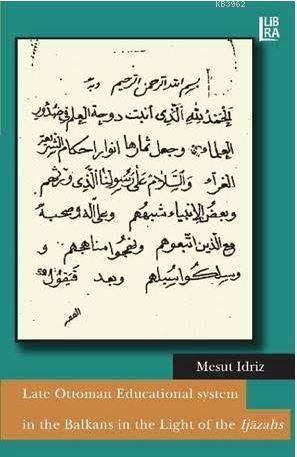 KB3962
LIB
RA
بسم الله الرحمن الرحيم وبه
الحمد لله الذى أنبت دوحة العلم فى صدور
العلماء وجعل ثمارها انوار احكام الشريعة
الغراء والسلام على رسولنا الذى ورثهم
وبعض الإنبياء شبههم وعلى اله وصحبه
مع الذين اتبعوهم مناهجهم و
وسلكوا سبيلهم وبعد فيقول
الفقير
Mesut Idriz
Late Ottoman Educational system
in the Balkans in the Light of the Ijāzahs